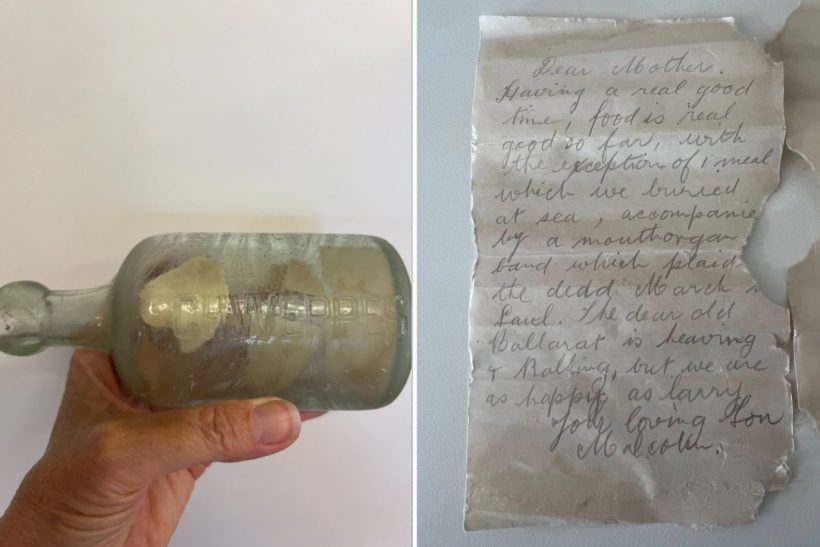 SCHWEPPES
Dear Mother.
Having a real good
time, food is real
good so far, with
the exception of 1 meal
which we buried
at sea, accompanie
by a mouthorgan
band which plaid
the dedd March
Saul. The dear old
Ballarat is heaving
& Rolling, but we are
as happy as larry
Your loving Son
Malcolm.